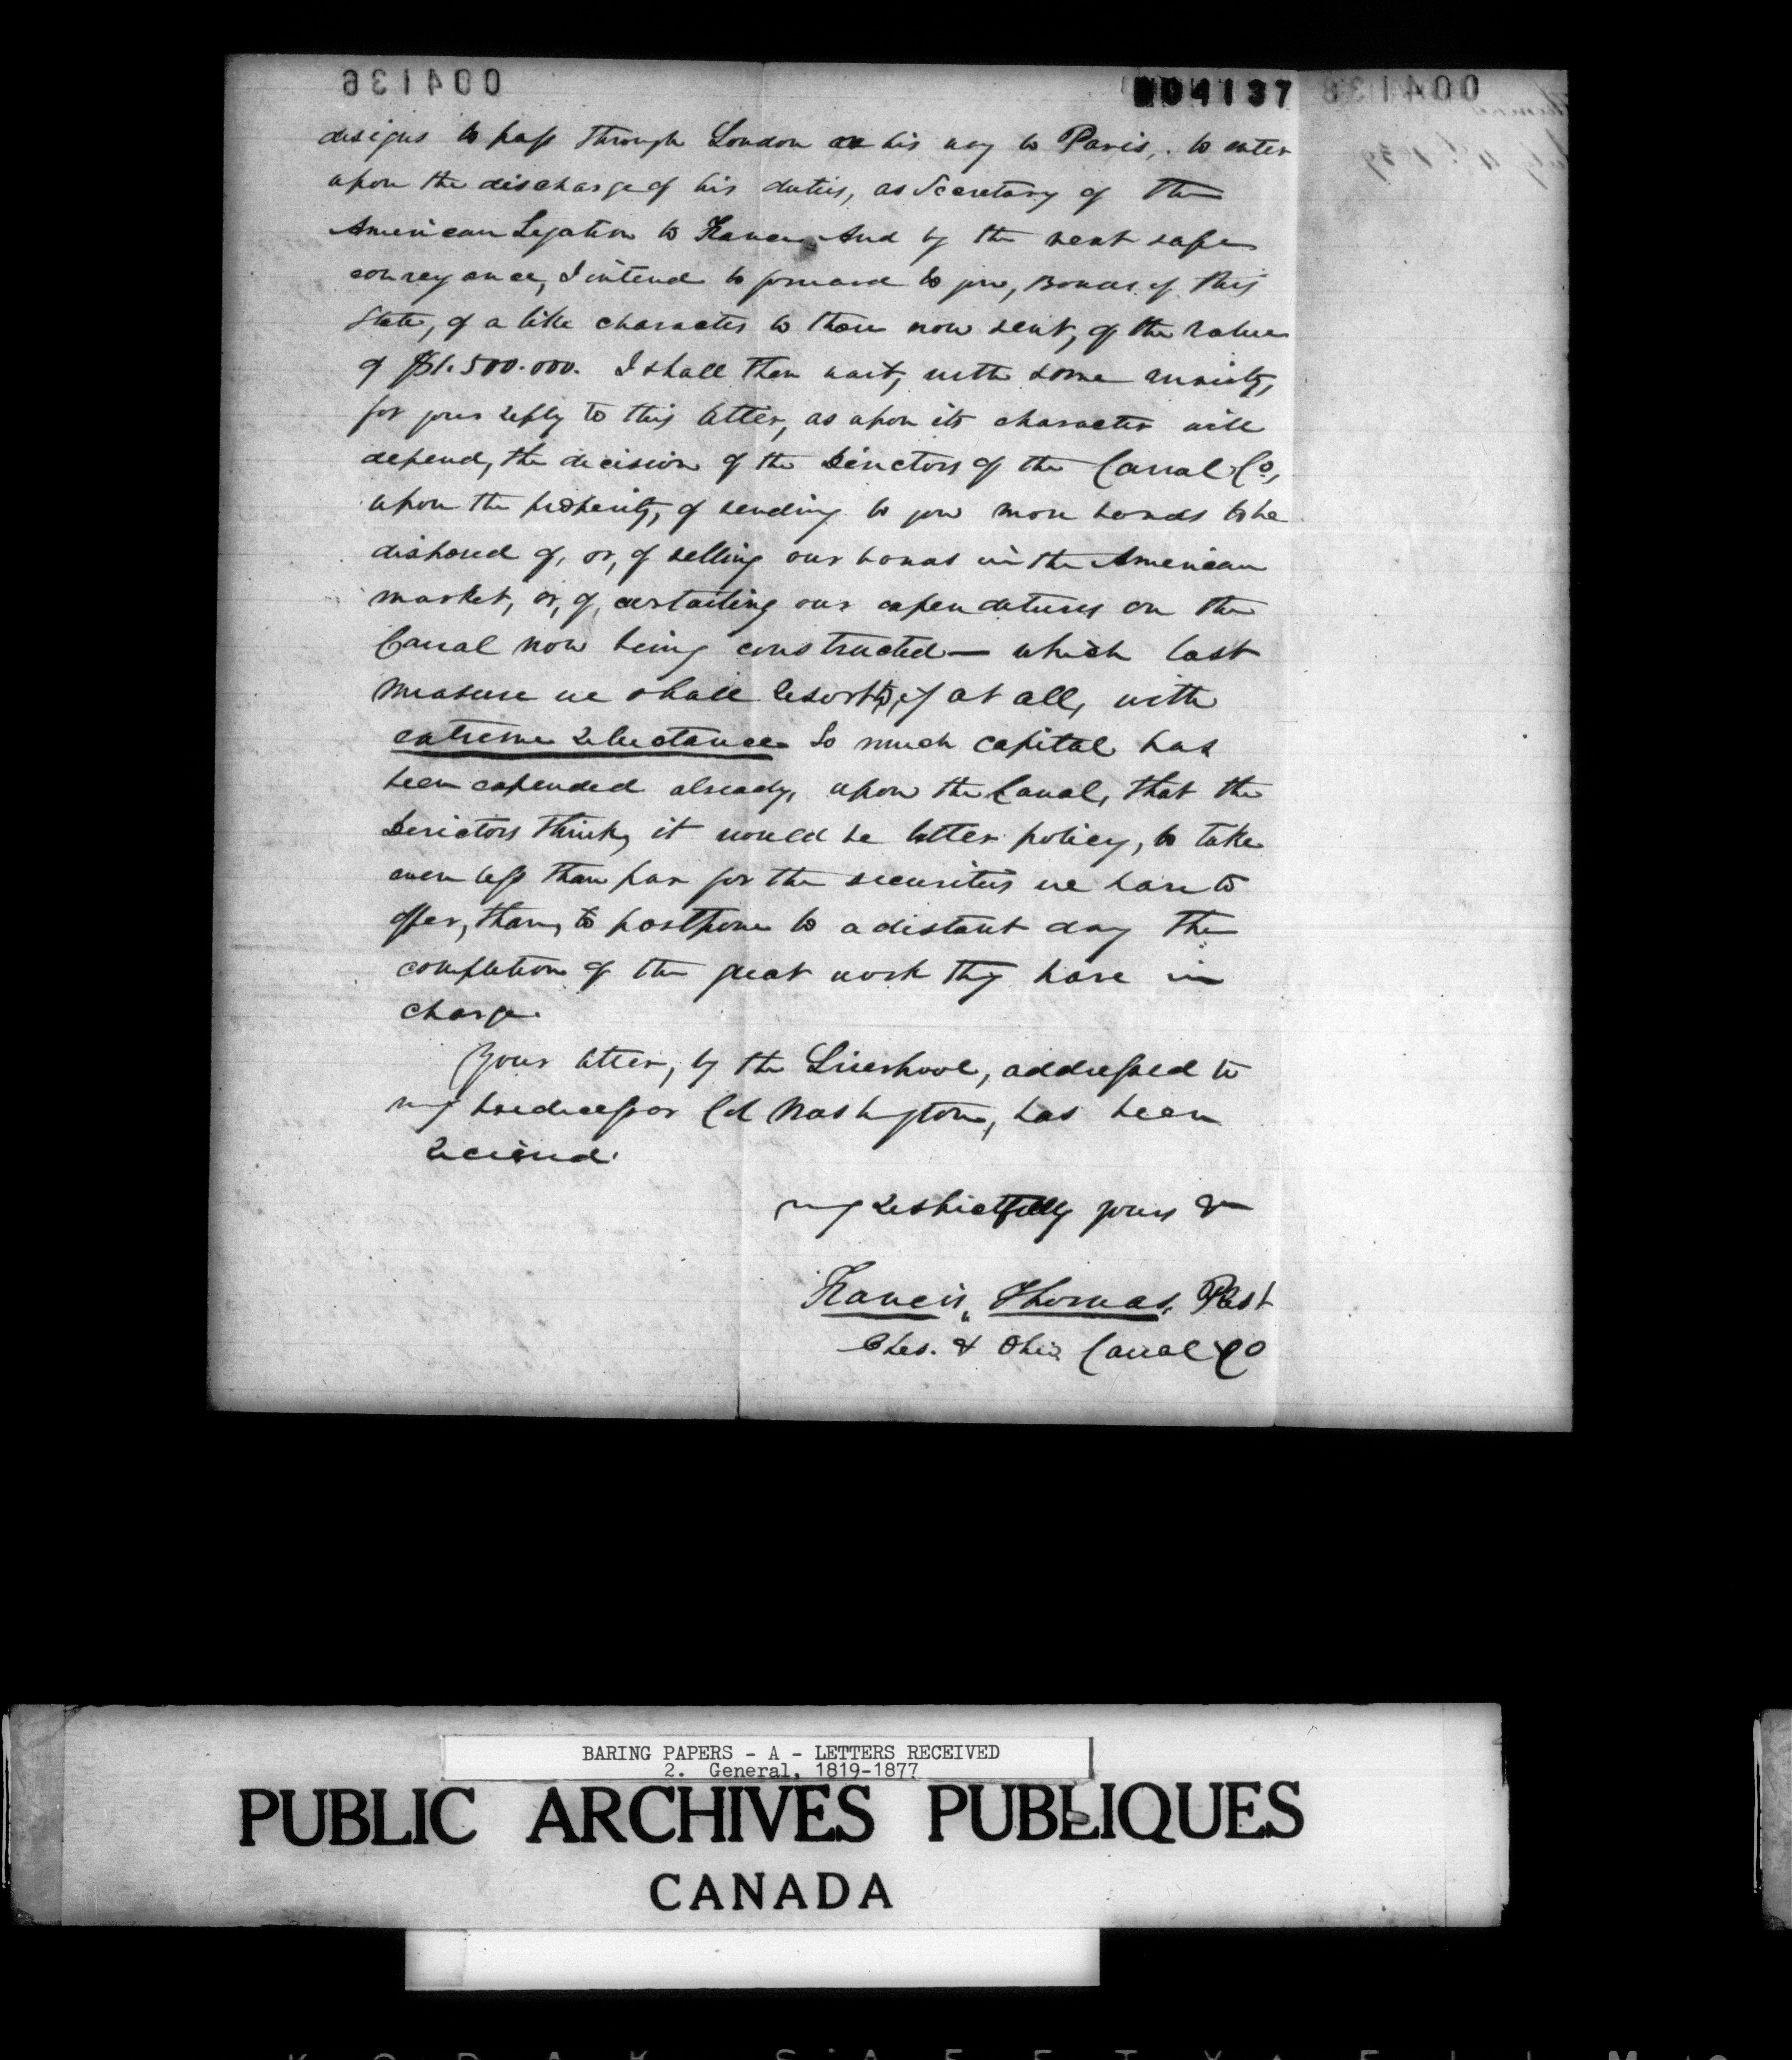 004136
004137
designs to pass through London on his way to Paris, to enter
upon the discharge of his duties, as Secretary of the
American Legation to France. And by the next safe
conveyance, I intend to forward to you, Bonds of this
State, of a like character to those now sent, of the value
of $1.500.000. I shall then wait, with some anxiety,
for your reply to this letter, as upon its character will
depend, the decision of the Directors of the Canal Co,
upon the propriety, of sending to you more bonds to be
disposed of, or, of selling our bonds in the American
market, or, of, curtailing our expenditures on the
Canal now being constructed — which last
measure we shall resort to, if at all, with
extreme reluctance. So much capital has
been expended already, upon the Canal, that the
Directors think, it would be better policy, to take
even less than par for the securities we have to
offer, than, to postpone to a distant day the
completion of the great work they have in
charge.
Your letter, by the Liverpool, addressed to
my predecessor Col Washington, has been
received.
very respectfully yours &c
Francis Thomas, Prest
Ches. & Ohio Canal Co
BARING PAPERS - A - LETTERS RECEIVED
2. General, 1819-1877
PUBLIC ARCHIVES PUBLIQUES
CANADA